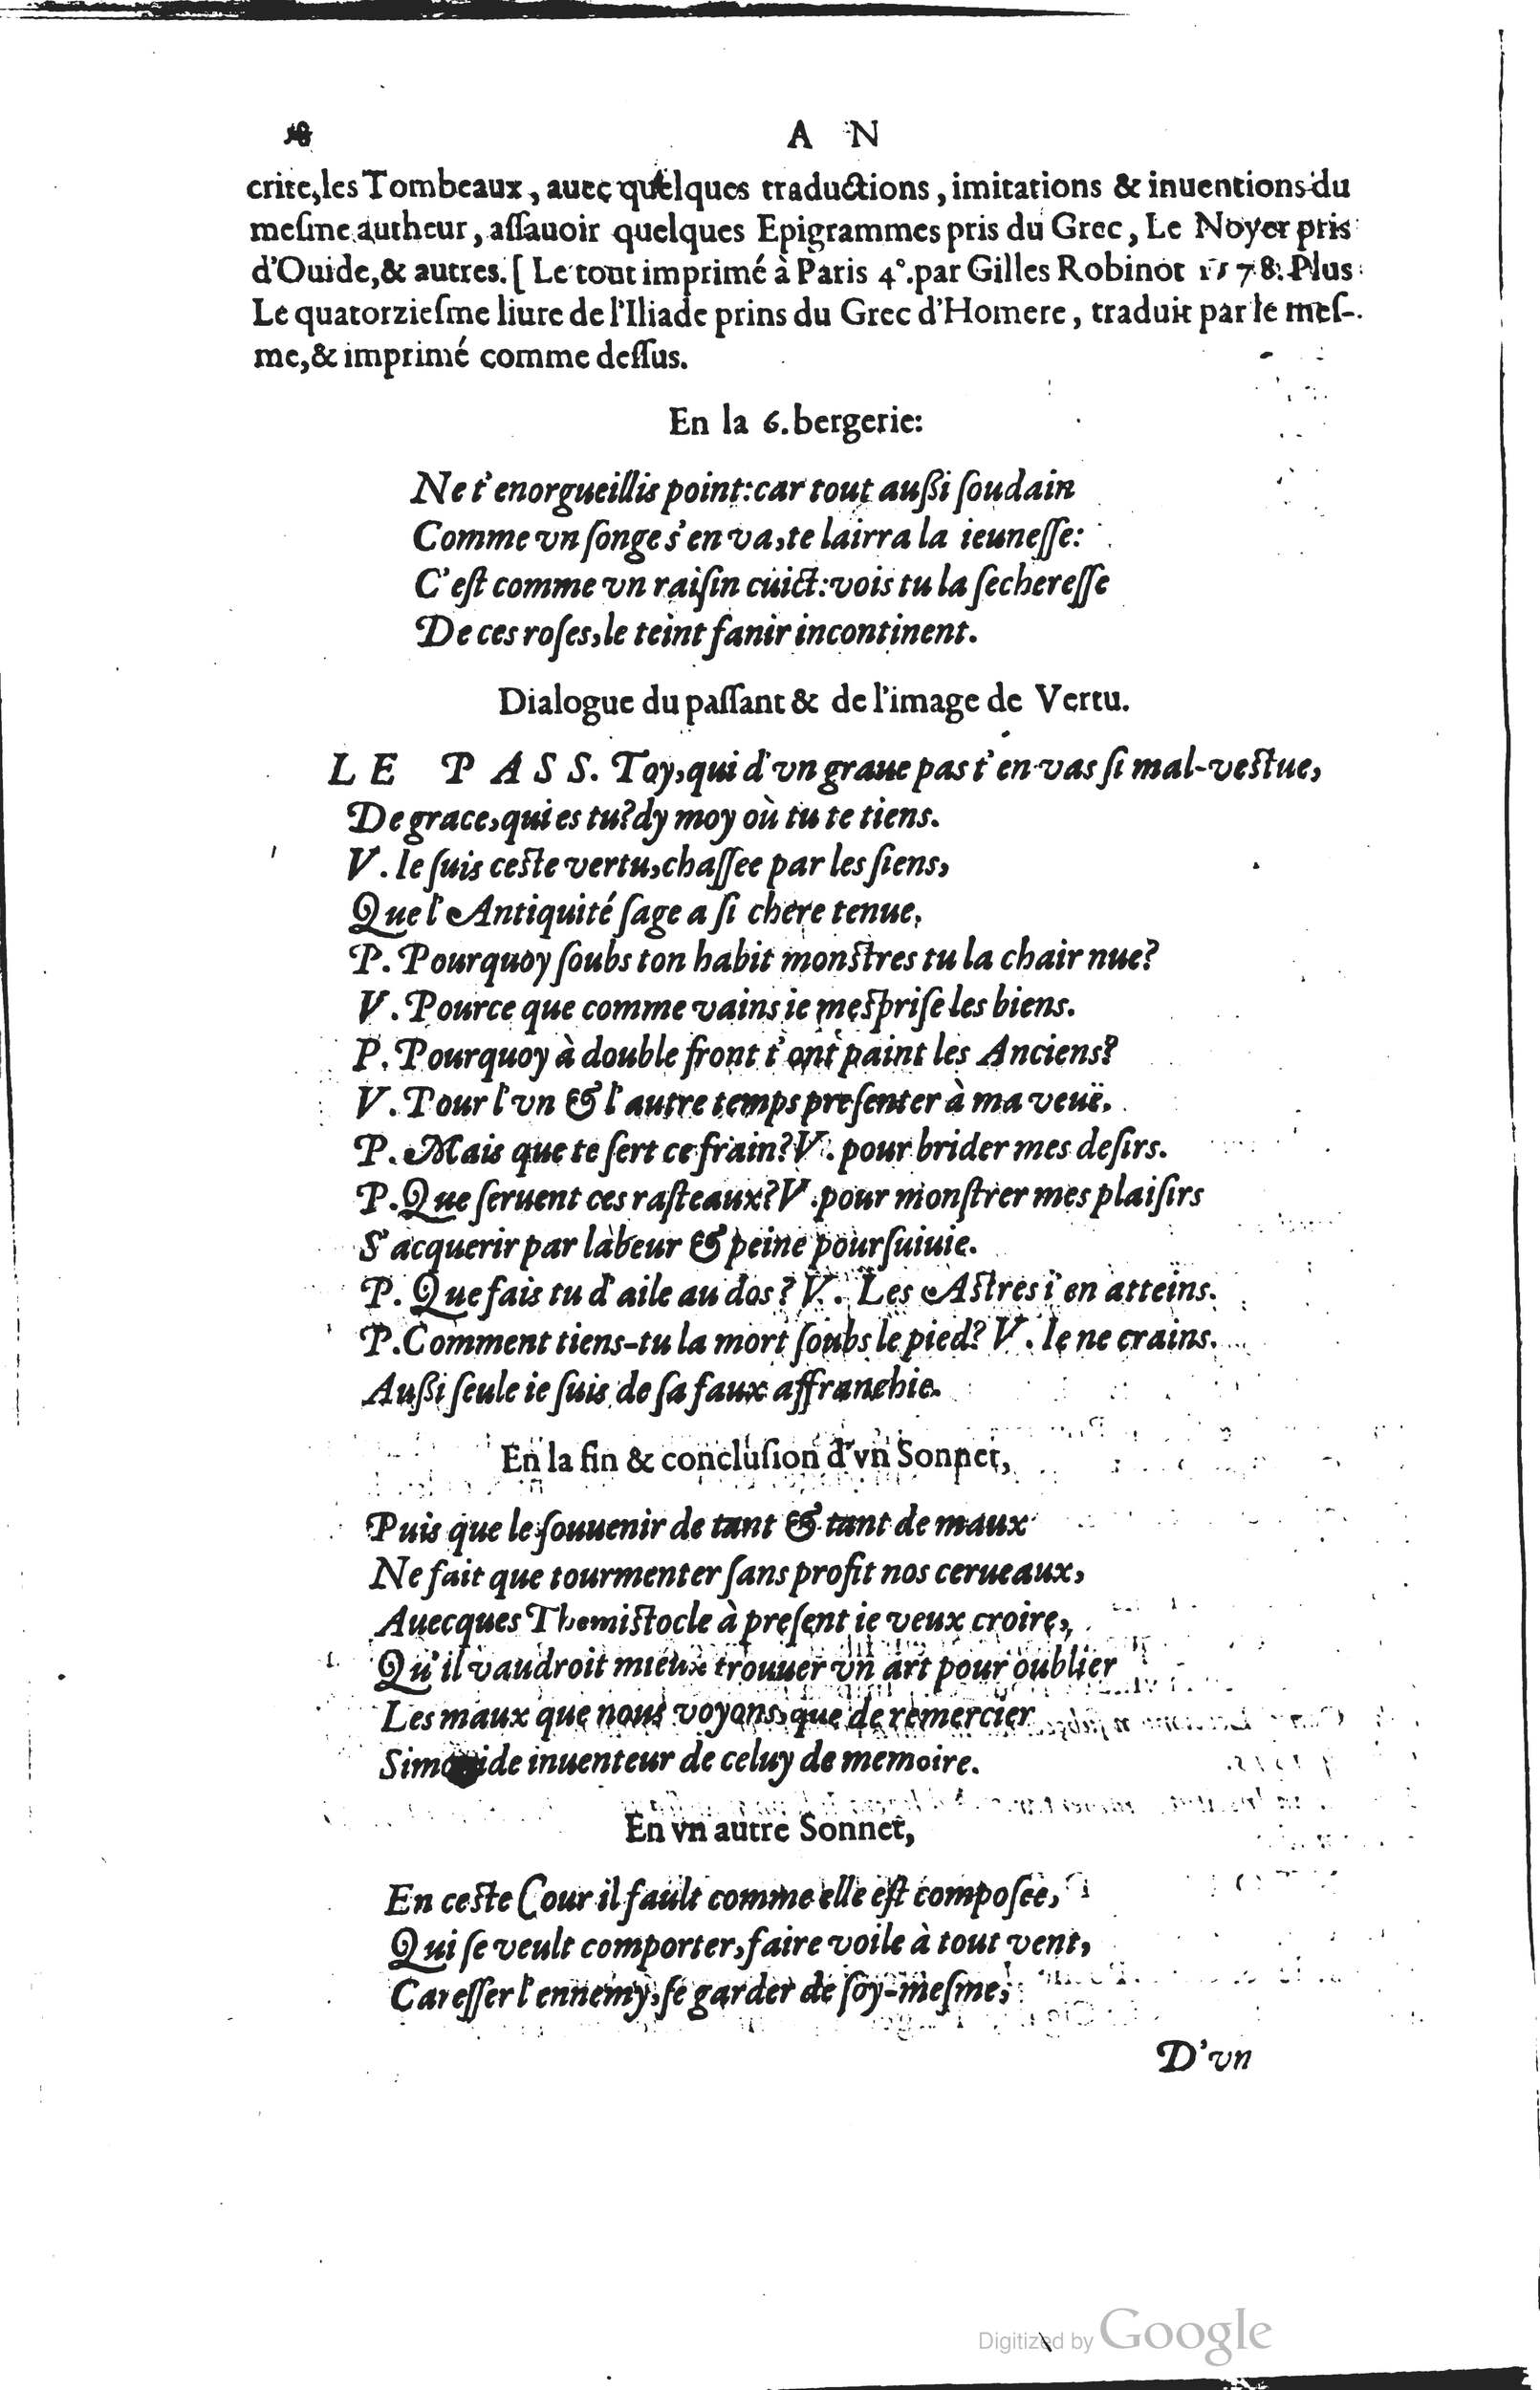 18 A N
crite, les Tombeaux, auec quelques traductions, imitations & inuentions du
meſme autheur, aſſauoir quelques Epigrammes pris du Grec, Le Noyer pris
d'Ouide, & autres. [Le tout imprimé à Paris 4°. par Gilles Robinot 1578. Plus
Le quatorzieſme liure de l'Iliade prins du Grec d'Homere, traduit par le meſ-
me, & imprimé comme deſſus.
En la 6. bergerie:
Ne t'enorgueillis point: car tout außi ſoudain
Comme vn ſonge s'en va, te lairra la ieuneſſe:
C'eſt comme vn raiſin cuict: vois tu la ſechereſſe
De ces roſes, le teint fanir incontinent.
Dialogue du paſſant & de l'image de Vertu.
LE PASS. Toy, qui d'vn graue pas t'en vas ſi mal-veſtue,
De grace, qui es tu? dy moy où tu te tiens.
V. Ie ſuis ceſte vertu, chaſſee par les ſiens,
Que l'Antiquité ſage a ſi chere tenue,
P. Pourquoy ſoubs ton habit monſtres tu la chair nue?
V. Pource que comme vains ie meſpriſe les biens.
P. Pourquoy à double front t'ont paint les Anciens?
V. Pour l'vn & l'autre temps preſenter à ma veuë.
P. Mais que te ſert ce frain? V. pour brider mes deſirs.
P. Que ſeruent ces raſteaux? V. pour monſtrer mes plaiſirs
S'acquerir par labeur & peine pourſuiuie.
P. Que fais tu d'aile au dos? V. Les Aſtres i'en atteins.
P. Comment tiens-tu la mort ſoubs le pied? V. Ie ne crains.
Außi ſeule ie ſuis de ſa faux affranchie.
En la fin & concluſion d'vn Sonnet,
Puis que le ſouuenir de tant & tant de maux
Ne fait que tourmenter ſans profit nos cerueaux,
Auecques Themiſtocle à preſent ie veux croire,
Qu'il vaudroit mieux trouuer vn art pour oublier
Les maux que nous voyons, que de remercier
Simonide inuenteur de celuy de memoire.
En vn autre Sonnet,
En ceſte Cour il fault comme elle eſt compoſee,
Qui ſe veult comporter, faire voile à tout vent,
Careſſer l'ennemy, ſe garder de ſoy-meſme,
D'vn
Digitized by Google